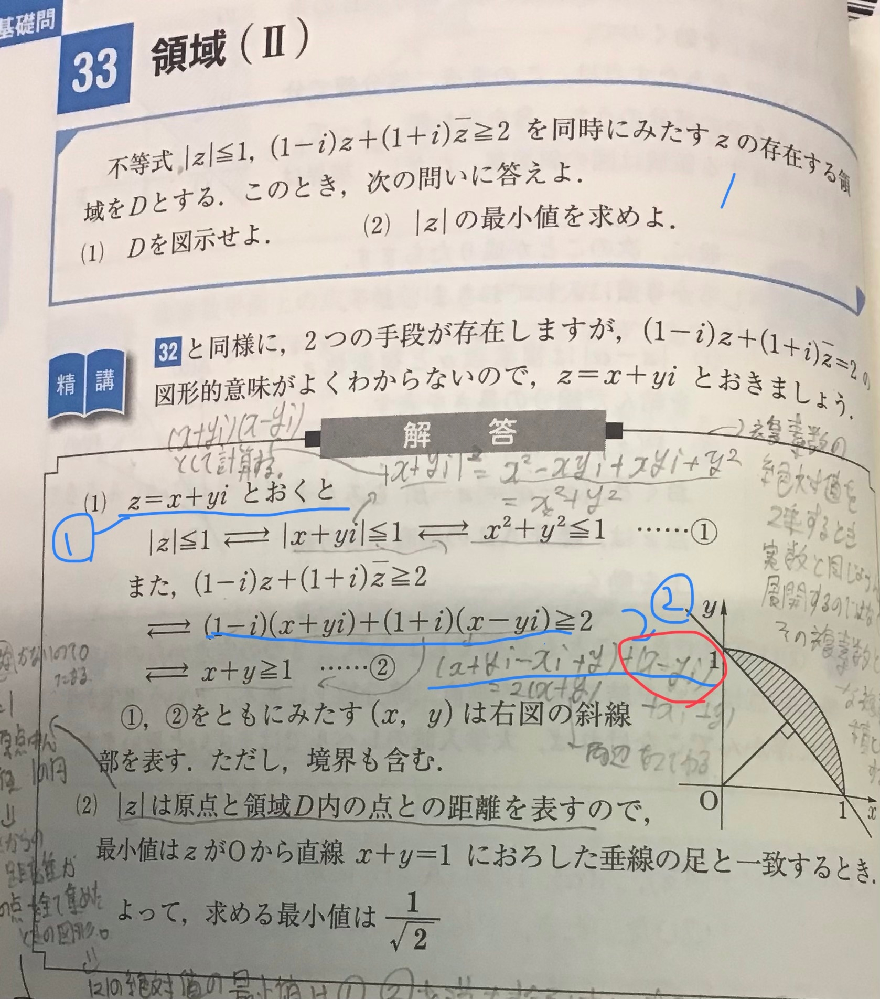 基礎問
33 領域(Ⅱ)
不等式 |z|≦1, (1−i)z+(1+i)z̄≧2 を同時にみたす z の存在する領
域をDとする.このとき,次の問いに答えよ.
(1) Dを図示せよ. (2) |z|の最小値を求めよ.
精講
32と同様に,2つの手段が存在しますが,(1−i)z+(1+i)z̄=2の
図形的意味がよくわからないので,z=x+yi とおきましょう.
解答
(x+yi)(x−yi)
として計算する。
|x+yi|²= x²−xyi+xyi+y²
= x²+y²
複素数の
絶対値を
2乗するとき
実数と同じ
展開するのでは
その複素数と
(1) z=x+yi とおくと
1
|z|≦1 ⟺ |x+yi|≦1 ⟺ x²+y²≦1 ……①
また,(1−i)z+(1+i)z̄≧2
⟺ (1−i)(x+yi)+(1+i)(x−yi)≧2
2
⟺ x+y≧1 ……②
(x+yi−xi+y)+(x−yi
+xi+y)
=2(x+y)
両辺
y
1
O
1
x
①,②をともにみたす (x, y) は右図の斜線
部を表す.ただし,境界も含む.
(2) |z|は原点と領域D内の点との距離を表すので,
最小値はzがOから直線 x+y=1 におろした垂線の足と一致するとき.
よって,求める最小値は 1/√2